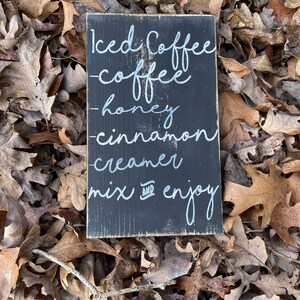 Iced Coffee
-coffee
-honey
-cinnamon
-creamer
mix AND enjoy